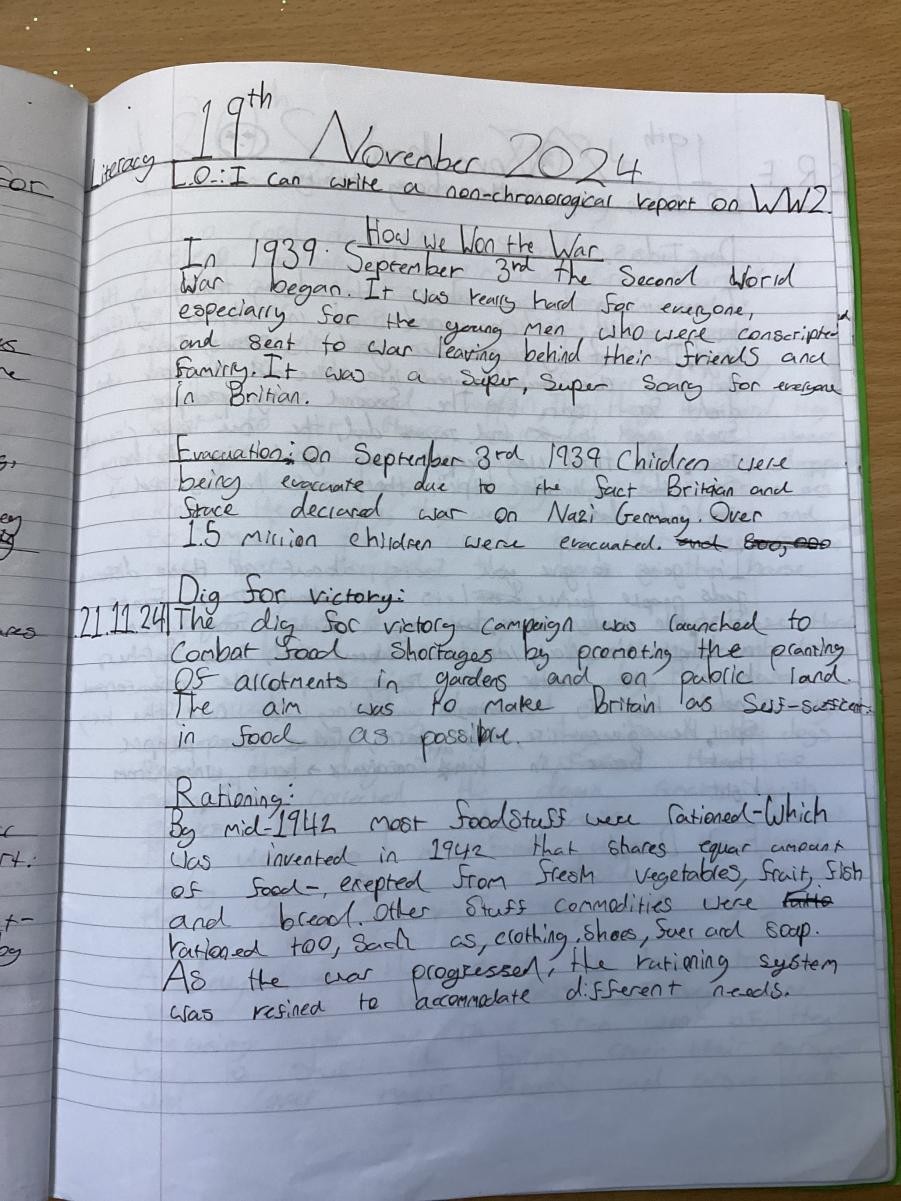 19th November 2024
Literacy
L.O.: I can write a non-chronological report on WW2.
How we Won the War
In 1939. September 3rd the Second World
War began. It was really hard for everyone,
especially for the young men who were conscripted
and sent to war leaving behind their friends and
family. It was a super, super scary for everyone
in Britian.
Evacuation: On September 3rd 1939 Children were
being evacuate due to the fact Britian and
declared war on Nazi Germany. Over
1.5 million children were evacuated. and 800,000
Dig for victory:
21.11.24 The dig for victory campaign was launched to
Combat food shortages by promoting the planting
Of allotments in gardens and on public land.
The aim was to make Britain as
in food as possible.
Rationing:
By mid-1942 most foodstuff were rationed-Which
was invented in 1942 that shares equal amount
of food-, exepted from fresh vegetables, fruit, fish
and bread. Other stuff commodities were
rationed too, Such as, clothing, shoes, fuel and soap.
As the war progressed, the rationing system
was refined to accommodate different needs.